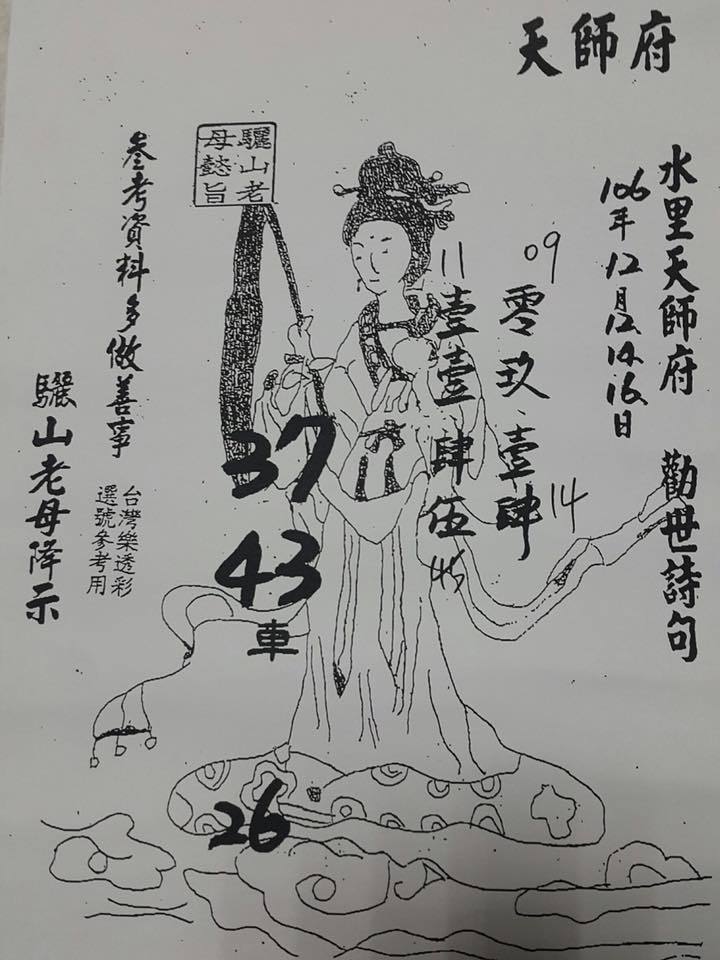 天師府
水里天師府 勸世詩句
106年12月12.14.16.日
09
零玖.壹肆
14
11
壹壹肆伍
45
37
43
車
26
驪山老
母懿旨
參考資料多做善事
台灣樂透彩
選號參考用
驪山老母降示